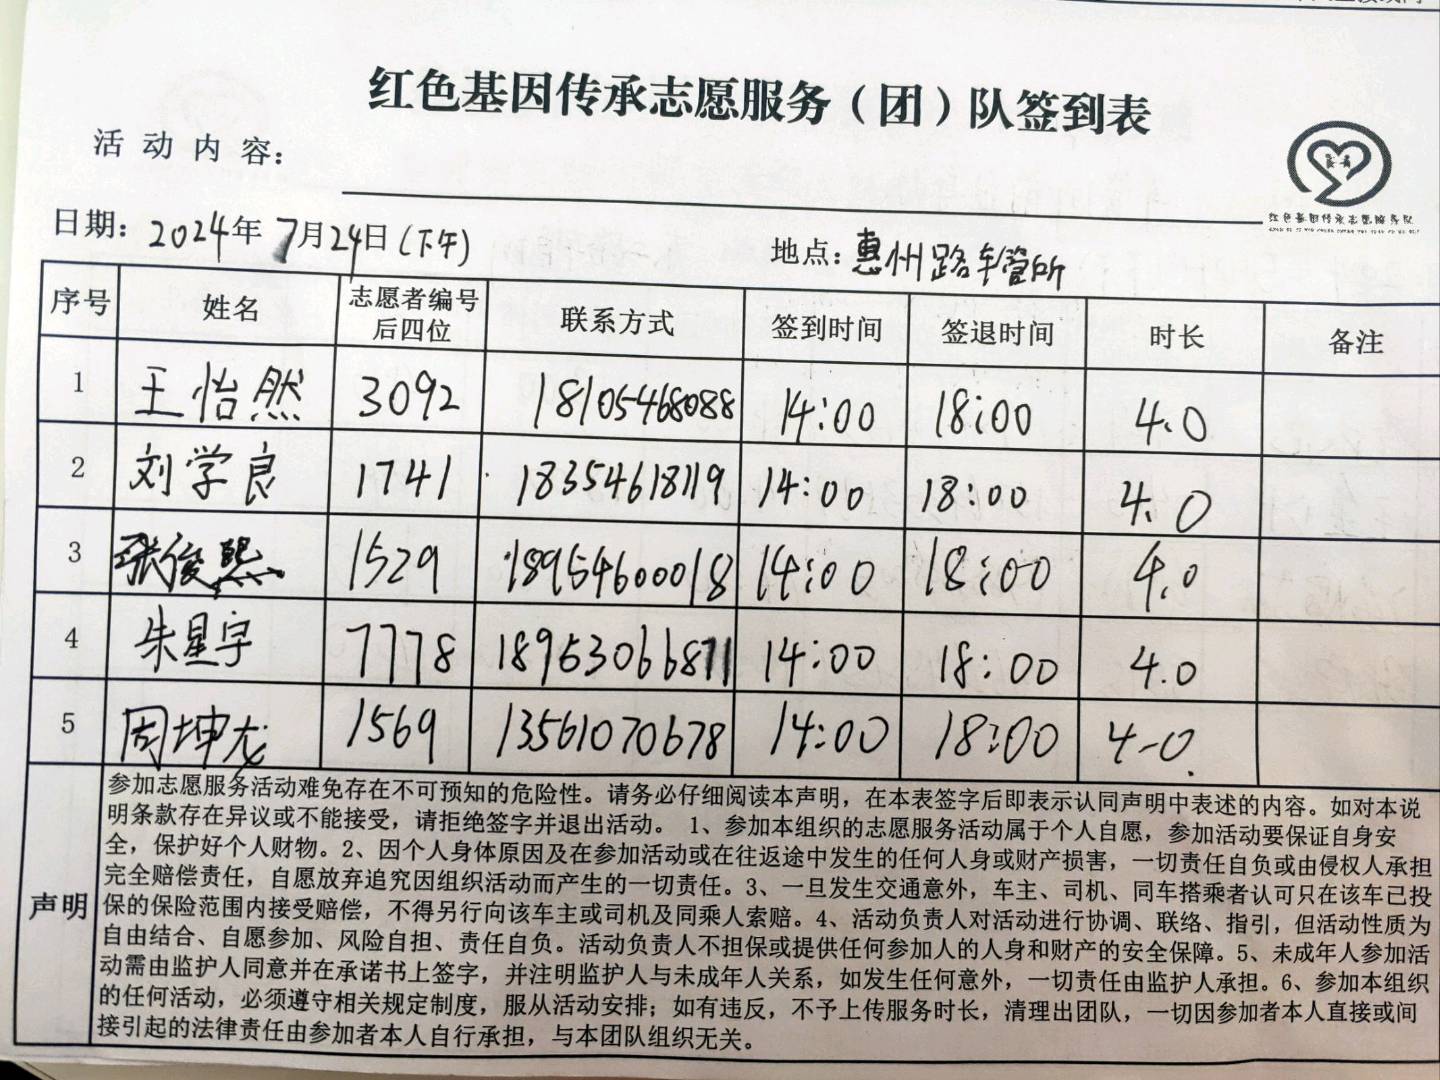 红色基因传承志愿服务（团）队签到表
活动内容：
红色基因传承志愿服务队
日期：2024年7月24日（下午） 地点：惠州路车管所
序号 姓名 志愿者编号后四位 联系方式 签到时间 签退时间 时长 备注
1 王怡然 3092 18105468088 14:00 18:00 4.0
2 刘学良 1741 18354618119 14:00 18:00 4.0
3 张俊熙 1529 18954600018 14:00 18:00 4.0
4 朱星宇 7778 18953066811 14:00 18:00 4.0
5 周坤龙 1569 13561070678 14:00 18:00 4-0.
声明
参加志愿服务活动难免存在不可预知的危险性。请务必仔细阅读本声明，在本表签字后即表示认同声明中表述的内容。如对本说
明条款存在异议或不能接受，请拒绝签字并退出活动。 1、参加本组织的志愿服务活动属于个人自愿，参加活动要保证自身安
全，保护好个人财物。2、因个人身体原因及在参加活动或在往返途中发生的任何人身或财产损害，一切责任自负或由侵权人承担
完全赔偿责任，自愿放弃追究因组织活动而产生的一切责任。3、一旦发生交通意外，车主、司机、同车搭乘者认可只在该车已投
保的保险范围内接受赔偿，不得另行向该车主或司机及同乘人索赔。4、活动负责人对活动进行协调、联络、指引，但活动性质为
自由结合、自愿参加、风险自担、责任自负。活动负责人不担保或提供任何参加人的人身和财产的安全保障。5、未成年人参加活
动需由监护人同意并在承诺书上签字，并注明监护人与未成年人关系，如发生任何意外，一切责任由监护人承担。6、参加本组织
的任何活动，必须遵守相关规定制度，服从活动安排；如有违反，不予上传服务时长，清理出团队，一切因参加者本人直接或间
接引起的法律责任由参加者本人自行承担，与本团队组织无关。